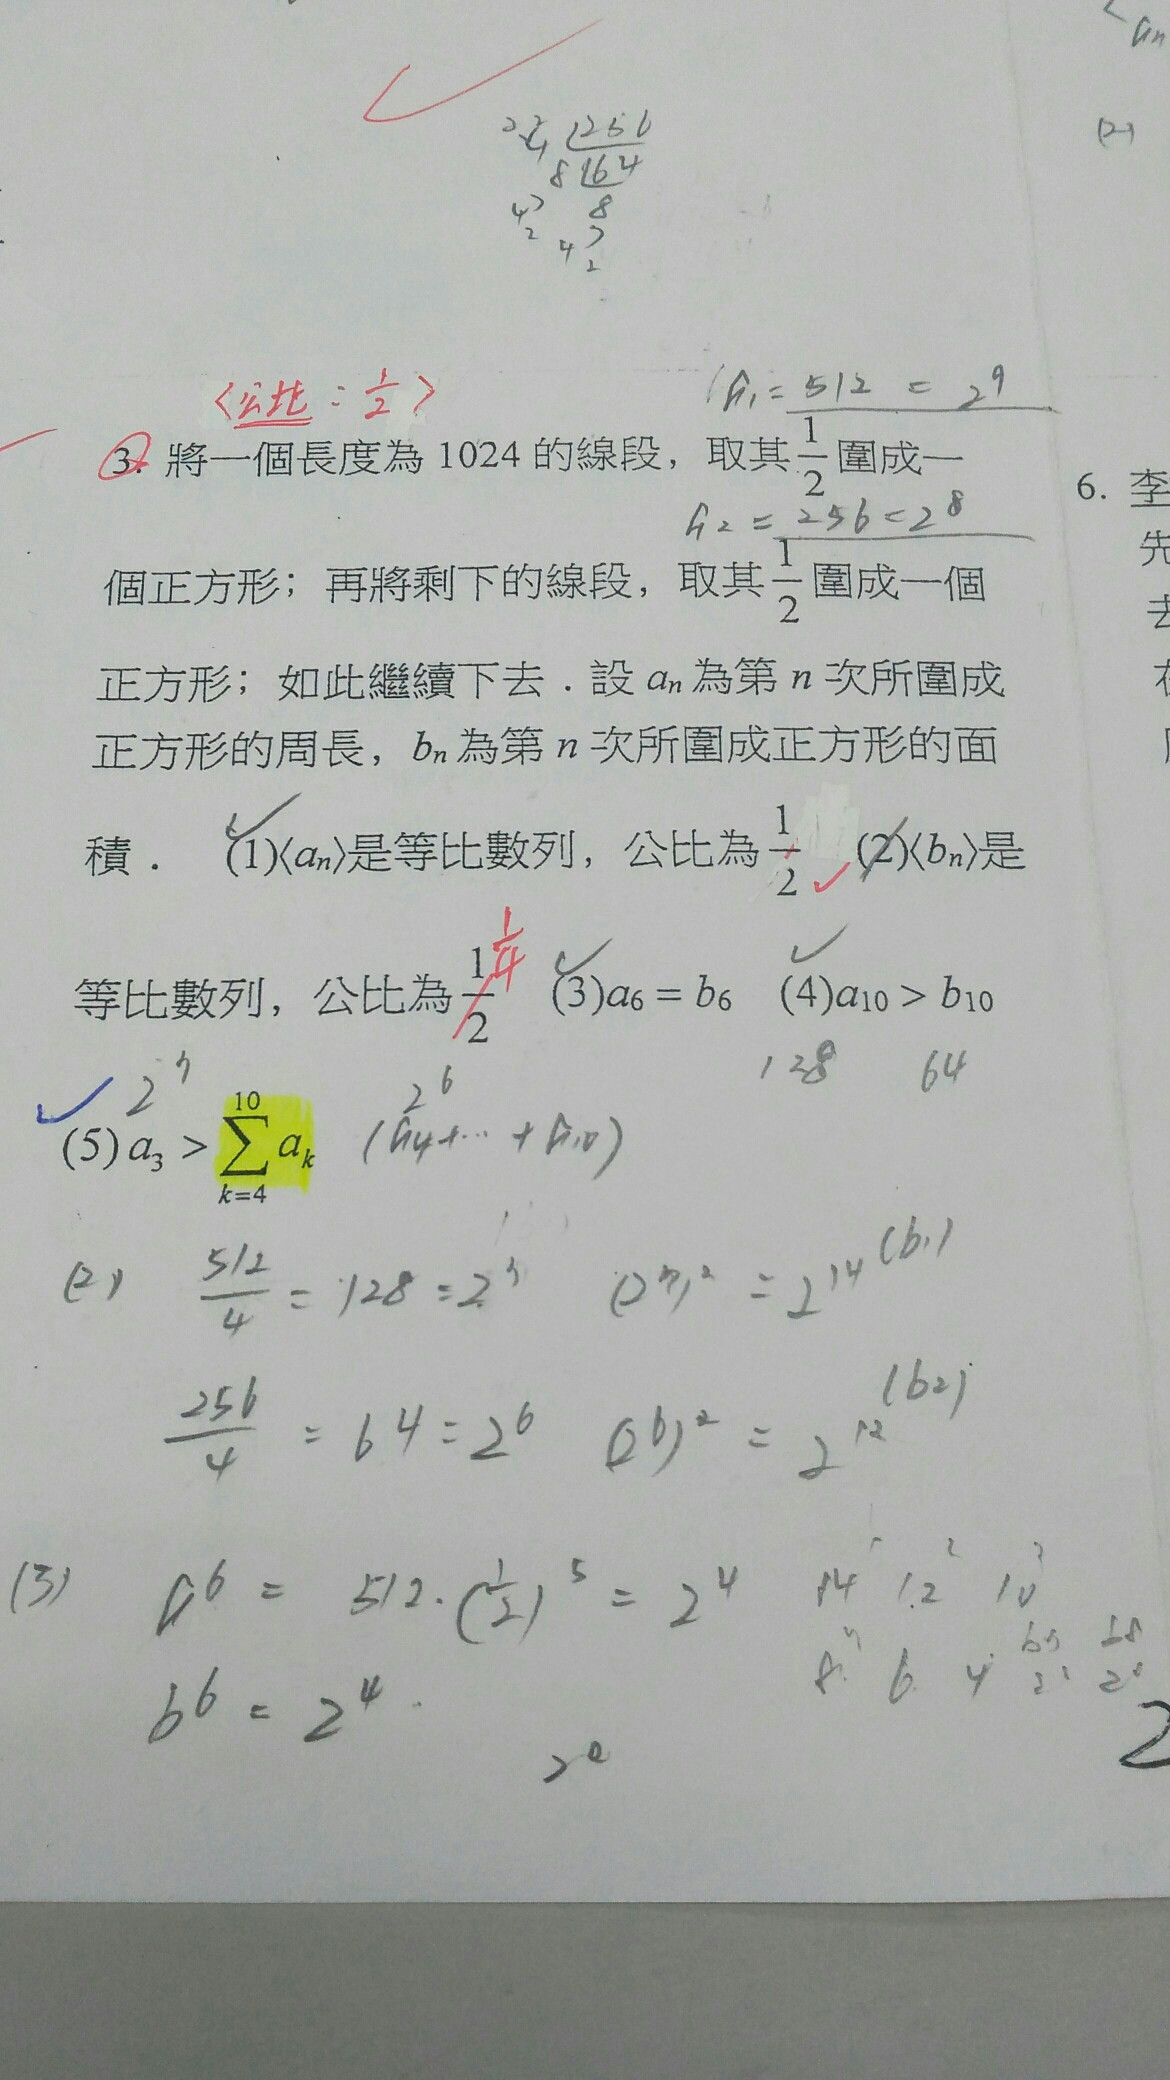 256
8 16 4
8
4 2
<公比：1/2>
a₁ = 512 = 2⁹
3. 將一個長度為 1024 的線段，取其 1/2 圍成一
a₂ = 256 = 2⁸
個正方形；再將剩下的線段，取其 1/2 圍成一個
正方形；如此繼續下去．設 aₙ 為第 n 次所圍成
正方形的周長，bₙ 為第 n 次所圍成正方形的面
積． (1)⟨aₙ⟩是等比數列，公比為 1/2 (2)⟨bₙ⟩是
等比數列，公比為 1/2 1/4 (3)a₆ = b₆ (4)a₁₀ > b₁₀
2⁷ 2⁶ 128 64
(5) a₃ > ∑_{k=4}^{10} aₖ (a₄+…+a₁₀)
(2) 512/4 = 128 = 2⁷ (2⁷)² = 2¹⁴ (b₁)
256/4 = 64 = 2⁶ (2⁶)² = 2¹² (b₂)
(3) a⁶ = 512·(1/2)⁵ = 2⁴ 14 12 10
8 6 4
b⁶ = 2⁴
2⁰
aₙ
(2)
6. 李
先
去
2